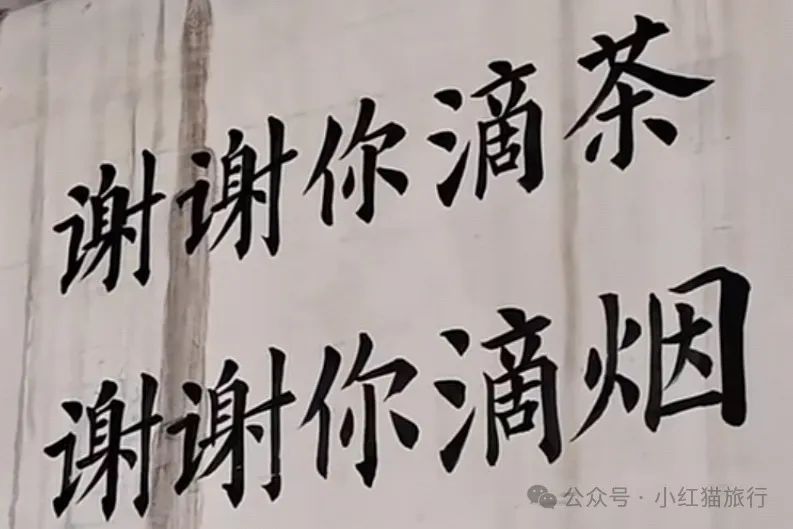 谢谢你滴茶
谢谢你滴烟
公众号·小红猫旅行